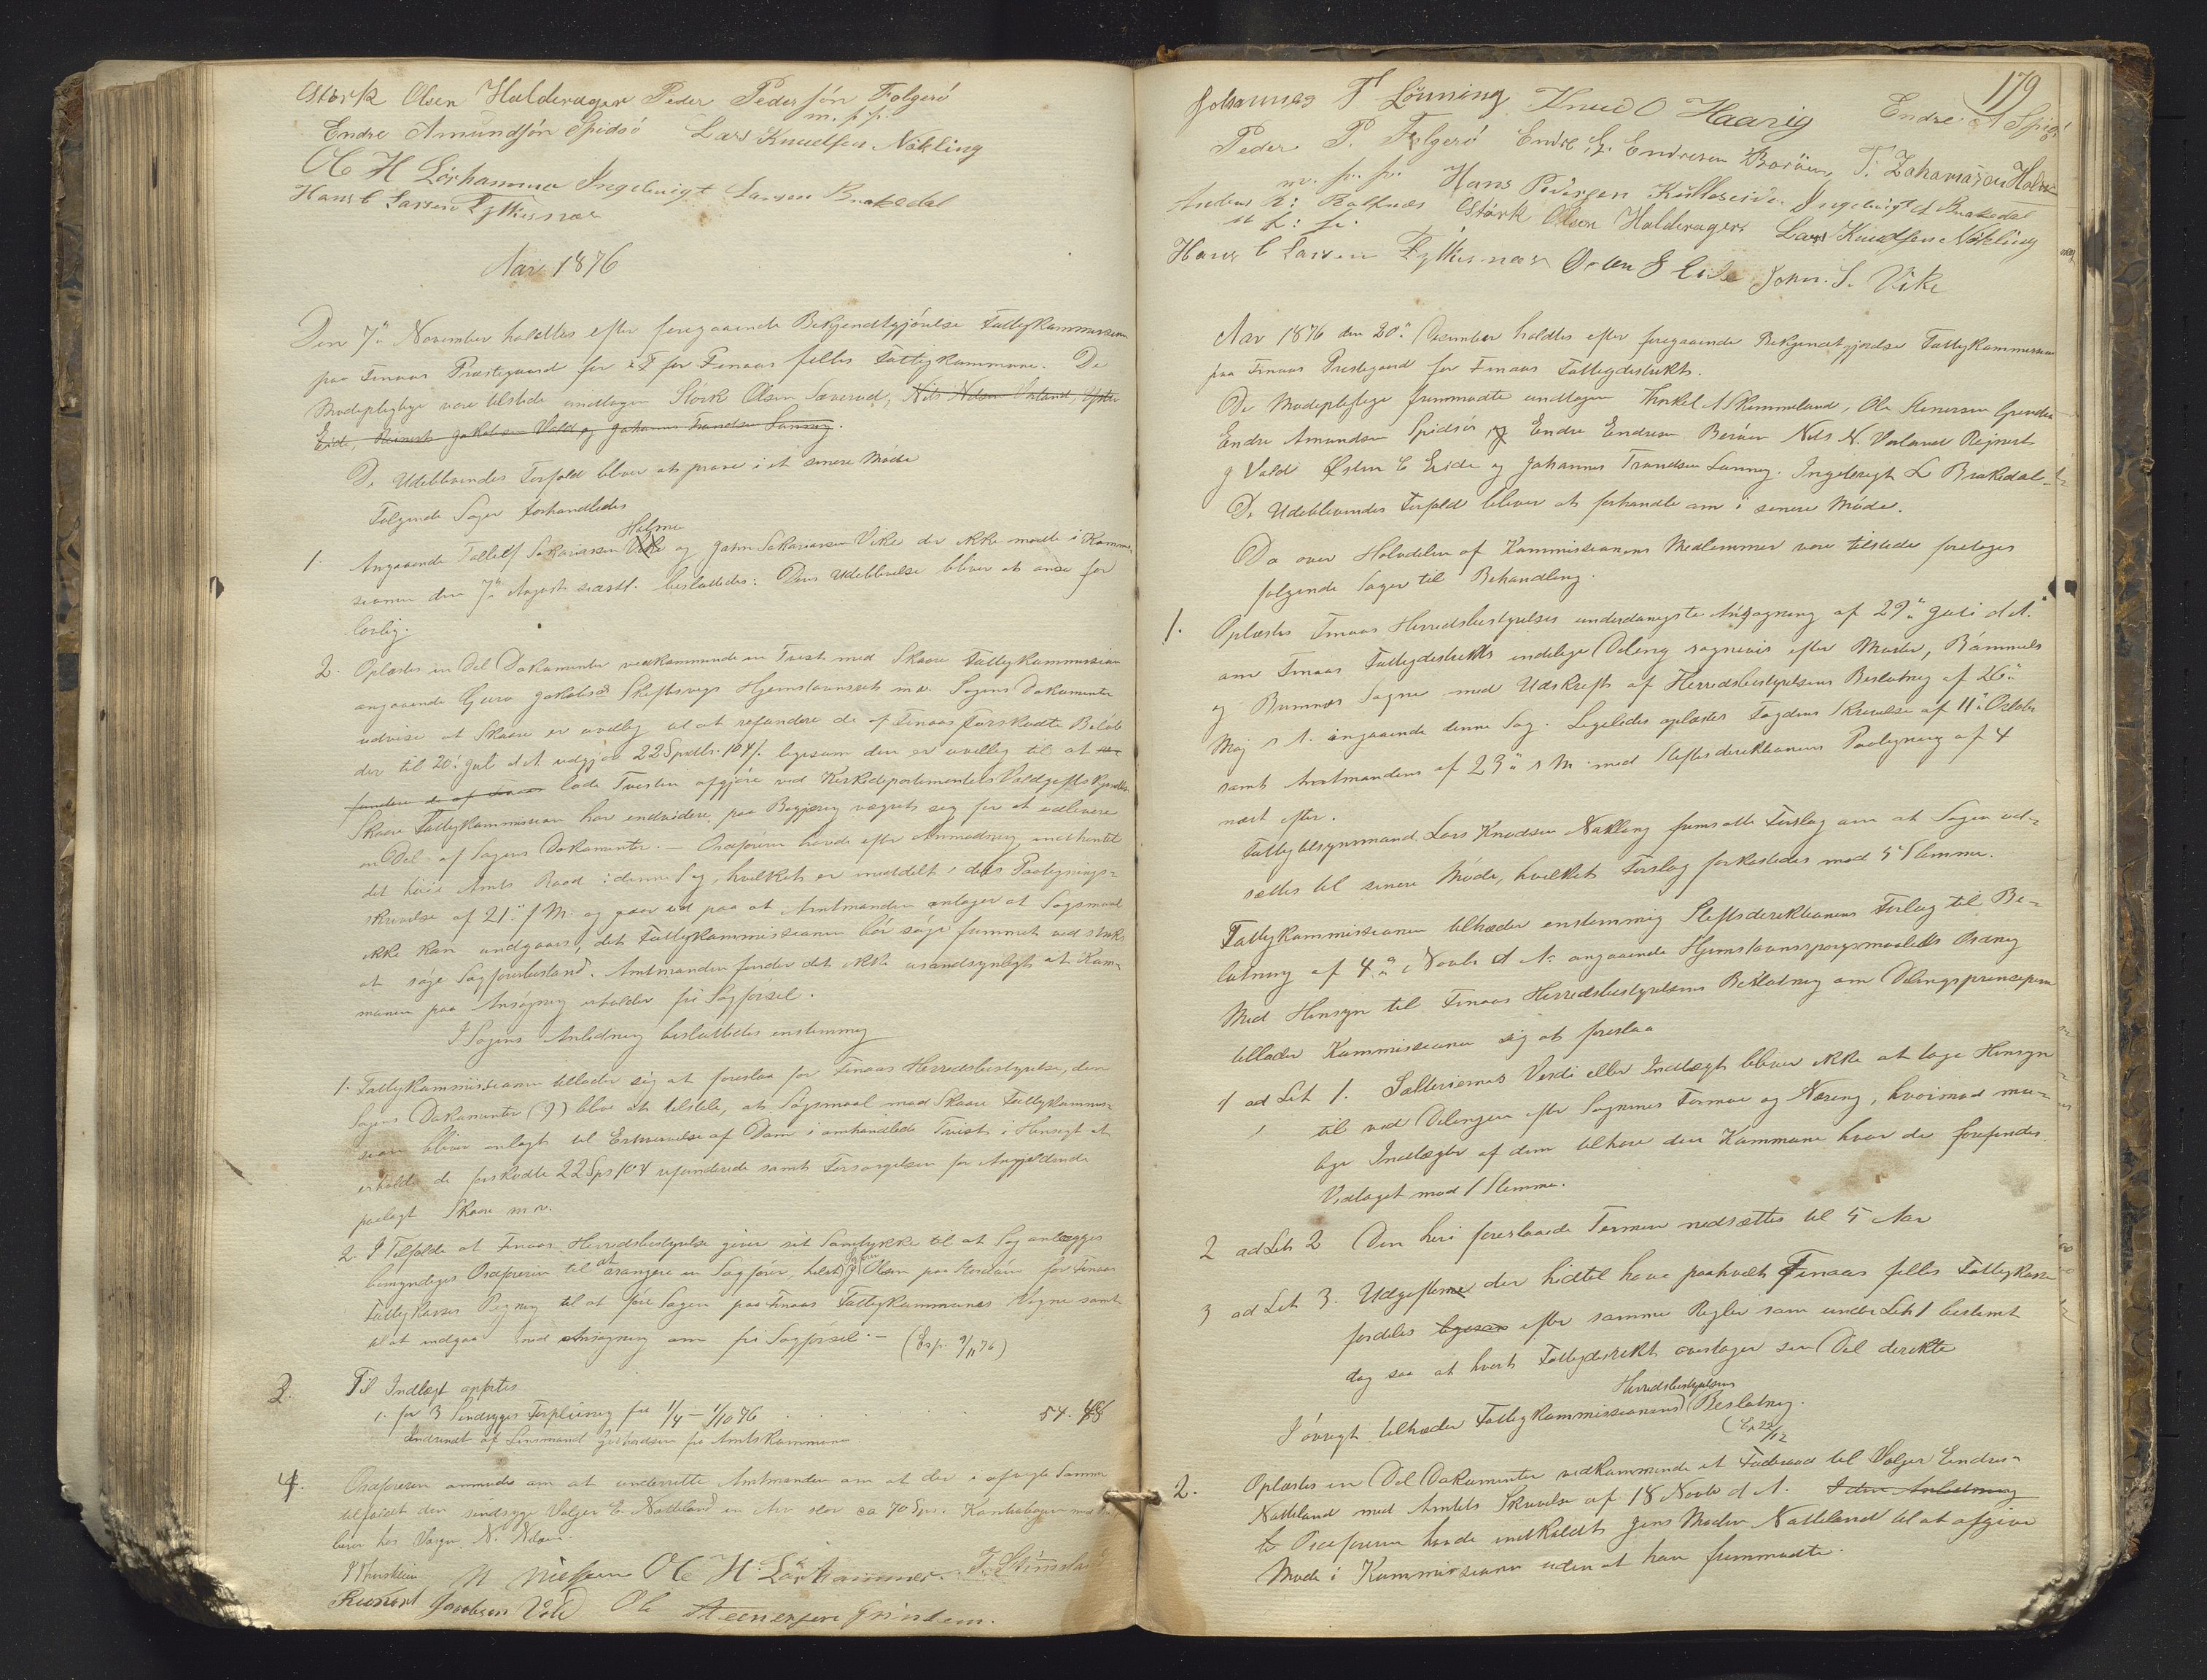 Størk Olsen Halderager Peder Pedersøn Folgerö
m. f. p.
Endre Amundsøn Spidsö Lars Knudsen Nökling
Ole H Lörhammer Ingebrigt Larsen Brakedal
Hans C Larsen Fylkesnæs
Aar 1876
Den 7de November holdtes efter foregaaende Bekjendtgjörelse Fattigkommission
paa Finaas Præstegaard for Finaas felles Fattigkommune. De
Mødepligtige vare tilstede undtagen Störk Olsen Sæverud, Nils Nilsen Valand, Östen
Eide, Reinert Jakobsen Vold og Johannes Trondsen Lønning.
De Udeblevendes Forfald bliver at prøve i et senere Møde
Følgende Sager forhandledes
1. Angaaende Tollef Sakariassen Vike Holme og John Sakariassen Vike der ikke mødte i Kommis-
sionen den 7de August sidstl. besluttedes: Deres Udeblivelse bliver at anse for
lovlig.
2. Oplæstes en Del Dokumenter vedkommende en Tvist med Skaare Fattigkommission
angaaende Guro Jakobsd. Skeftsvigs Hjemstavnsret m.v. Sagens Dokumenter
udvise at Skaare er uvillig til at refundere de af Finaas forskudte Beløb
der til 20. Juli d. A. udgjør 22 Spdlr. 104 s. ligesom den er uvillig til at re-
fundere de af Finaas lade Tvisten afgjøre ved Kirkedepartementets Voldgiftskjendelse
Skaare Fattigkommission har endvidere paa Begjæring vægret sig for at udlevere
en Del af Sagens Dokumenter. – Ordføreren havde efter Anmodning indhentet
det høie Amts Raad i denne Sag, hvilket er meddelt i dets Paategnings-
skrivelse af 21de f. M. og gaar ud paa at Amtmanden antager at Søgsmaal
ikke kan undgaaes, det Fattigkommissionen bør søge fremmet ved straks
at søge Sagførerbistand. Amtmanden finder det ikke usandsynligt at Kom-
munen paa Ansøgning erholder fri Sagførsel.
I Sagens Anledning besluttedes enstemmig
1. Fattigkommissionen tillader sig at foreslaa for Finaas Herredsbestyrelse, den
Sagens Dokumenter (9) blive at tilstile, at Søgsmaal mod Skaare Fattigkommis-
sion bliver anlagt til Erhvervelse af Dom i omhandlede Tvist i Hensigt at
erholde de forskudte 22 Sp 104 refunderede samt Forsørgelsen for Angjeldende
paalagt Skaare m.v.
2. I Tilfælde at Finaas Herredsbestyrelse giver sit Samtykke til at Sag anlægges
bemyndiges Ordføreren til at arangere en Sagfører, helst Olsen paa Stordøen for Finaas
Fattigkasses Regning til at føre Sagen paa Finaas Fattigkommunes Vegne samt
til at indgaa med Ansøgning om fri Sagførsel. – (Exp. 9/11 76)
3. Til Indtægt anførtes
1. for 3 Sindsyges Forpleining fra 1/4 – 1/10 76 54. 48
Indsendt af Lensmand fra Amtskommunen
4. Ordføreren anmodes om at underrette Amtmanden om at der i afvigte Sommer
tilfaldt den sindsyge Valger E. Nattland en Arv stor ca 70 Spd. Kontrabogen
beror hos Værgen N. Nilsen.
N Nielsen Ole H Lörhammer.
Reinert Jacobsen Vold Ole Steenersen Grindem.
179
Johannes T Lönning Knud O Haavig Endre A Spidsö
Peder P. Folgerö Endre E. Endresen Beröen, T. Zakariasen Holme
m. f. p. Hans Pedersen Kulleseide Ingebrigt L Brakedal
Størk Olsen Halderager Lars Knudsen Nökling
Hans C Larsen Fylkesnæs Osten E Eide John. S. Vike
Aar 1876 den 20de December holdtes efter foregaaende Bekjendtgjørelse Fattigkommission
paa Finaas Prestegaard for Finaas Fattigdistrikt.
De Mødepligtige fremmødte undtagen Thorkel A Skimmeland, Ole Stenersen Grindem
Endre Amundsen Spidsö, og Endre Endresen Beröen Nils N. Valand Rejnert
J Vold Østen E Eide og Johannes Trondsen Lønning. Ingebrigt L Brakedal
De Udeblevendes Forfald bliver at forhandle om i senere Møde.
Da over Halvdelen af Kommissionens Medlemmer vare tilstede foretoges
følgende Sager til Behandling.
1. Oplæstes Finaas Herredsbestyrelses underdanigste Ansøgning af 29de Juli d. A.
om Finaas Fattigdistrikts endelige Deling sognevis efter Moster, Bömmels
og Bremnes Sogne med Udskrift af Herredsbestyrelsens Beslutning af 26de
Maj s. A. angaaende denne Sag. Ligeledes oplæstes Fogdens Skrivelse af 11de Oktober
samt Amtmandens af 23de s. M. med Stiftsdirektionens Paategning af 4
næst efter.
Fattigtilsynsmand Lars Knudsen Nökling fremsatte Forslag om at Sagen ud-
sættes til senere Møde, hvilket Forslag forkastedes mod 5 Stemmer.
Fattigkommissionen tiltræder enstemmig Stiftsdirektionens Forslag til Be-
slutning af 4de Novbr. d. A. angaaende Hjemstavnsspørgsmaalets Ordning
Med Hensyn til Finaas Herredsbestyrelses Beslutning om Delingsprincipen
tillader Kommissionen sig at foreslaa
1 ad Lit 1. Salteriernes Verdi eller Indtægt bliver ikke at tage Hensyn
til ved Delingen efter Sognenes Formue og Næring, hvorimod mu-
lige Indtægter af dem tilhøre den Kommune hvor de forefindes.
Vedtaget mod 1 Stemme.
2 ad Lit 2 Den heri foreslaaede Termin nedsættes til 5 Aar
3 ad Lit 3. Udgifterne der hidtil have paahvilt Finaas felles Fattigkasse
fordeles ligesaa efter samme Regler som under Lit 1 bestemt
dog saa at hvert Fattigdistrikt overtager sin Del direkte
I øvrigt tiltræder Fattigkommissionen Herredsbestyrelsens Beslutning.
(Ex 22/12
2. Oplæstes en Del Dokumenter vedkommende et Føderaad til Valger Endres-
Nattland med Amtets Skrivelse af 18 Novbr d. A. I den Anledning
Ordføreren havde indkaldt Jens Nattland til at afgive
Møde i Kommissionen uden at han fremmødte.